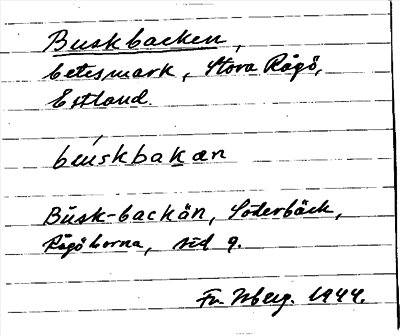 Buskbacken,
betesmark, Stora Rågö,
Estland.
béuskbakan
Busk-backän, Söderbäck,
Rågöborna, sid 9.
Fr. Isberg. 1944.